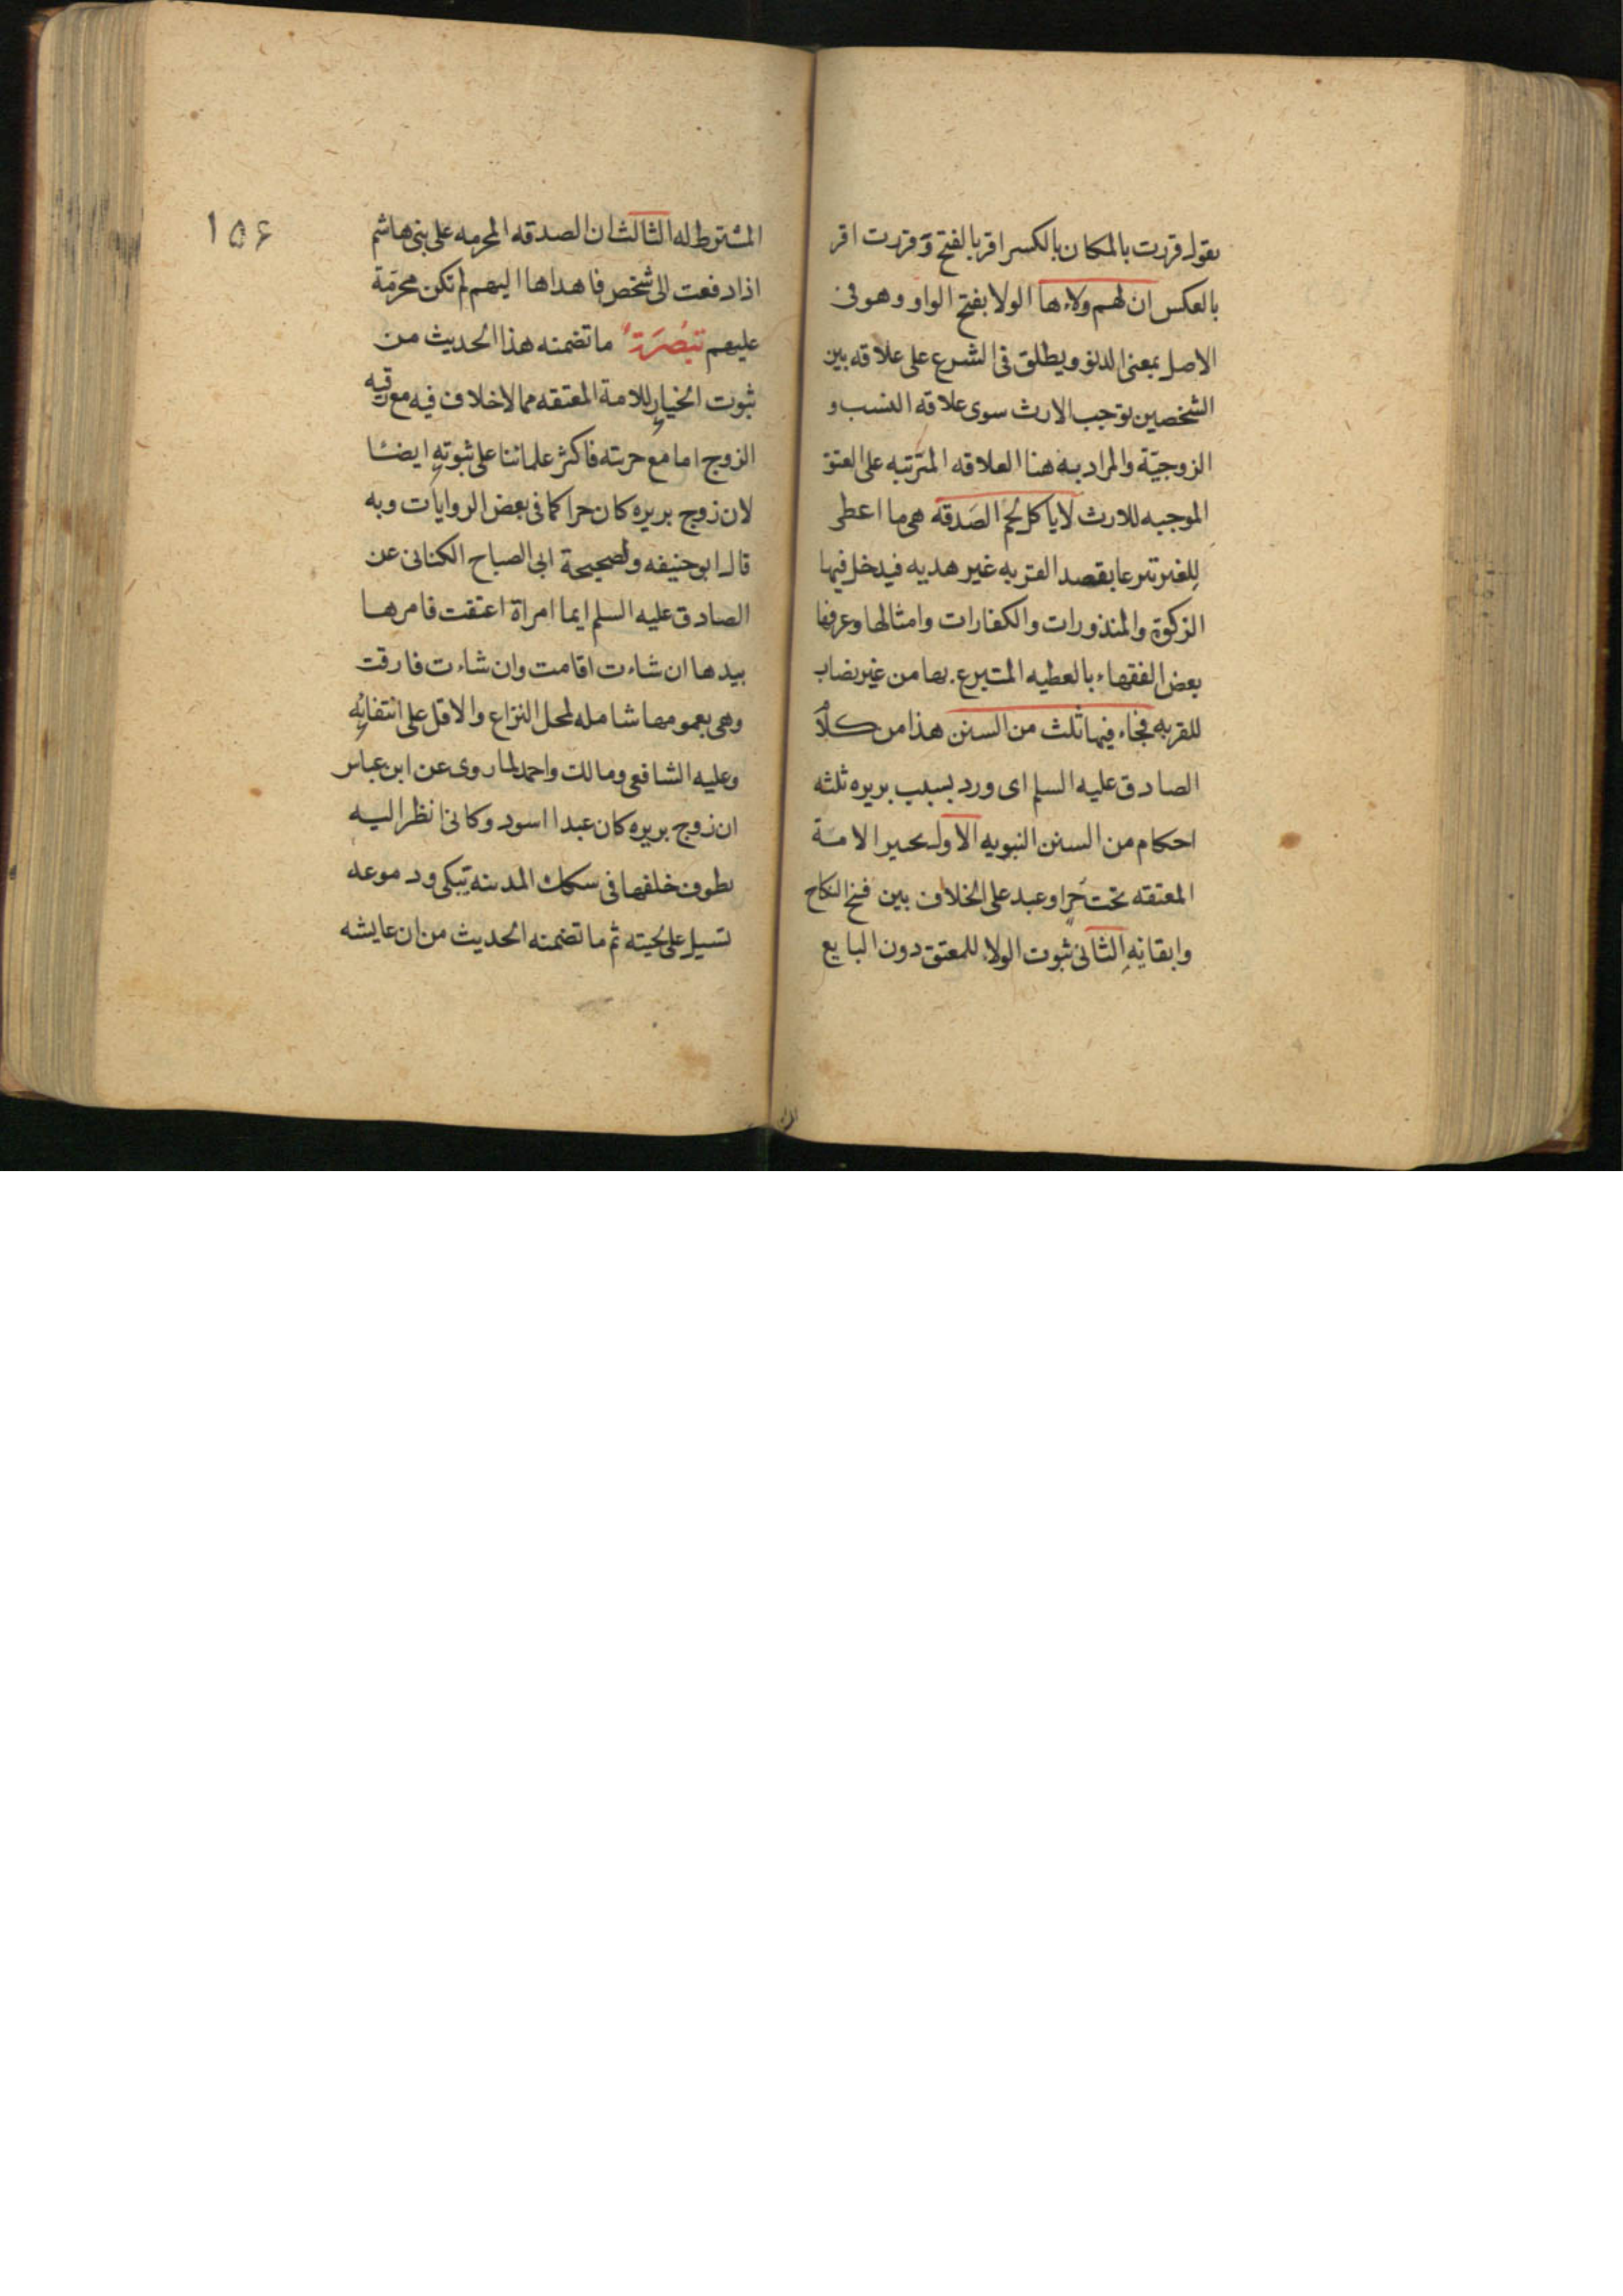 يقول قررت بالمكان بالكسر اقر بالفتح و قررت اقر
بالعكس ان لهم ولاءها الولا بفتح الواو وهو فى
الاصل بمعنى الدنو ويطلق فى الشرع على علاقه بين
الشخصين توجب الارث سوى علاقه النسب و
الزوجيّة والمراد به هنا العلاقه المترتبه على العتق
الموجبه للارث لا ياكل لحم الصَدقة هى ما اعطى
للغير تبرعا بقصد القربه غير هديه فيدخل فيها
الزكوة والمنذورات والكفارات وامثالها وعرفها
بعض الفقهاء بالعطيه المتبرع بها من غير نصاب
للقربه فجاء فيها ثلث من السنن هذا من كلام
الصادق عليه السلم اى ورد بسبب بريره ثلثه
احكام من السنن النبويه الاول تخيير الامة
المعتقه تحت حرٍ او عبد على الخلاف بين فسخ النكاح
وابقائهِ الثانى ثبوت الولاء للمعتق دون البايع
١٥۶
المشترط له الثالث ان الصدقه المحرمه على بنى هاشم
اذا دفعت الى شخص فاهداها اليهم لم تكن محرّمة
عليهم تبصَرة ما تضمنه هذا الحديث من
ثبوت الخيار للامة المعتقه مما لاخلاف فيه مع رقيه
الزوج اما مع حريته فاكثر علمائنا على ثبوتهِ ايضًا
لان زوج بريره كان حرا كما فى بعض الروايات وبه
قال ابو حنيفه ولصحيحة ابى الصباح الكنانى عن
الصادق عليه السلم ايما امراة اعتقت فامرها
بيدها ان شاءت اقامت وان شاءت فارقت
وهى بعمومها شامله لمحل النزاع والاقل على انتفائِه
وعليه الشافعى ومالك واحمد لما روى عن ابن عباس
ان زوج بريره كان عبدا اسود وكانى انظر اليه
يطوف خلفها فى سكك المدينه يبكى ودموعه
تسيل على لحيته ثم ما تضمنه الحديث من ان عايشه